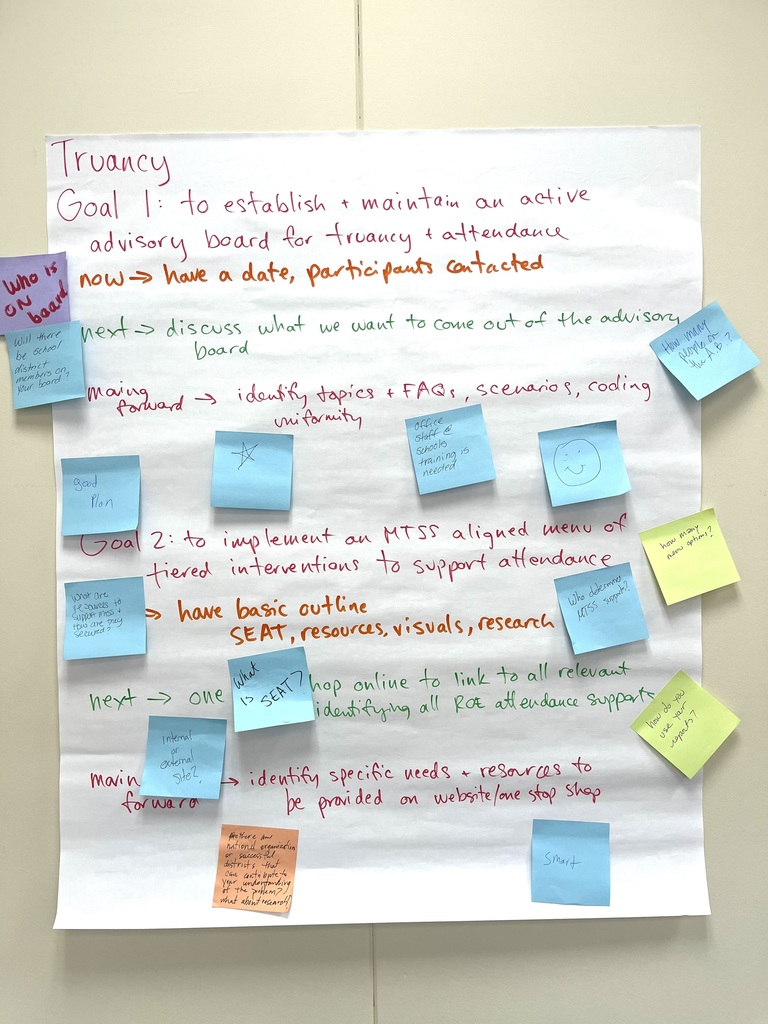 Truancy
Goal 1: to establish + maintain an active
advisory board for truancy + attendance
now → have a date, participants contacted
Who is
ON
board
next → discuss what we want to come out of the advisory
board
Will there
be School
district
members on
your board?
How many
people on
the A.B?
moving
forward → identify topics + FAQs, scenarios, coding
uniformity
office
staff @
schools
training is
needed
good
Plan
Goal 2: to implement an MTSS aligned menu of
tiered interventions to support attendance
how many
menu options?
What are
resources to
support MTSS +
How are they
secured?
→ have basic outline
SEAT, resources, visuals, research
Who determines
MTSS supports?
What
is SEAT?
next → one hop online to link to all relevant
identifying all ROE attendance supports
how do you
use your
reports?
Internal
or
external
Site?
→ identify specific needs + resources to
forward be provided on website/one stop shop
national organization
or successful
districts that
can contribute to
your understanding
of the problem?
what about research?
Smart